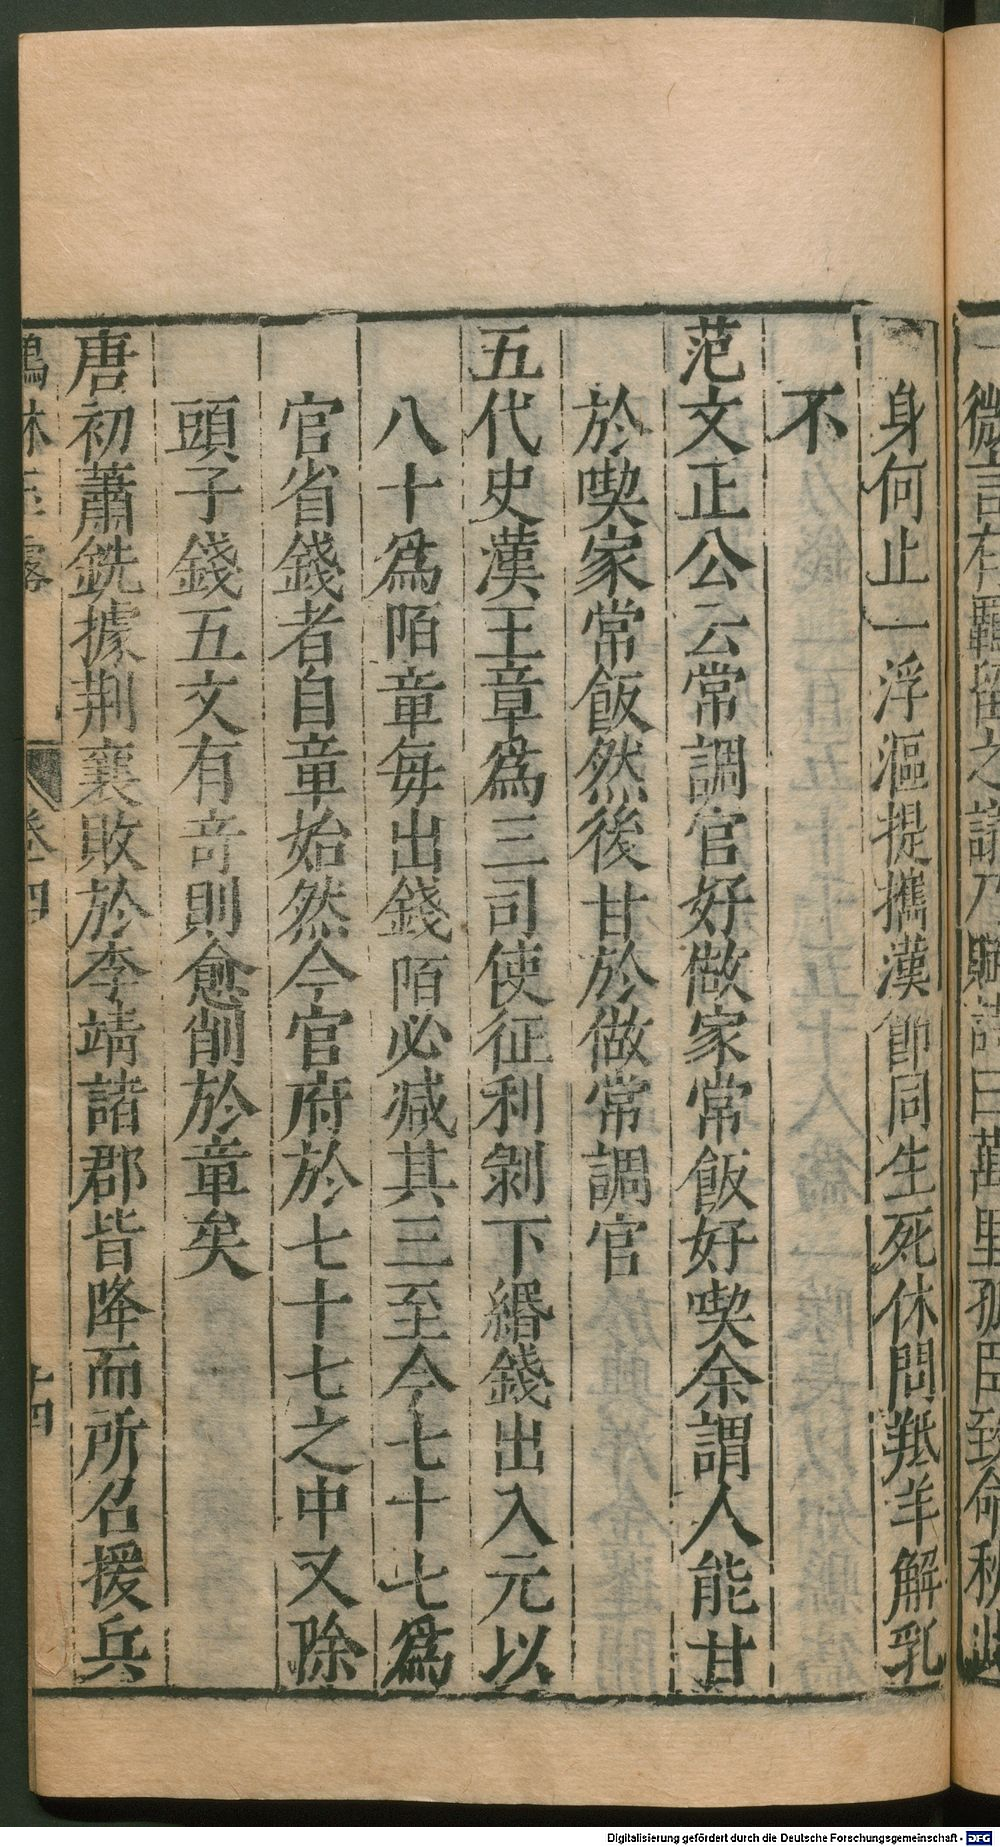 身何止一浮漚提攜漢節同生死休問羝羊解乳
不
范文正公云常調官好做家常飯好喫余謂人能甘
於喫家常飯然後甘於做常調官
五代史漢王章爲三司使征利剝下緡錢出入元以
八十爲陌章每出錢陌必減其三至今七十七爲
官省錢者自章始然今官府於七十七之中又除
頭子錢五文有奇則愈削於章矣
唐初蕭銑據荆襄敗於李靖諸郡皆降而所召援兵
鶴林玉露 卷四 十四
Digitalisierung gefördert durch die Deutsche Forschungsgemeinschaft - DFG